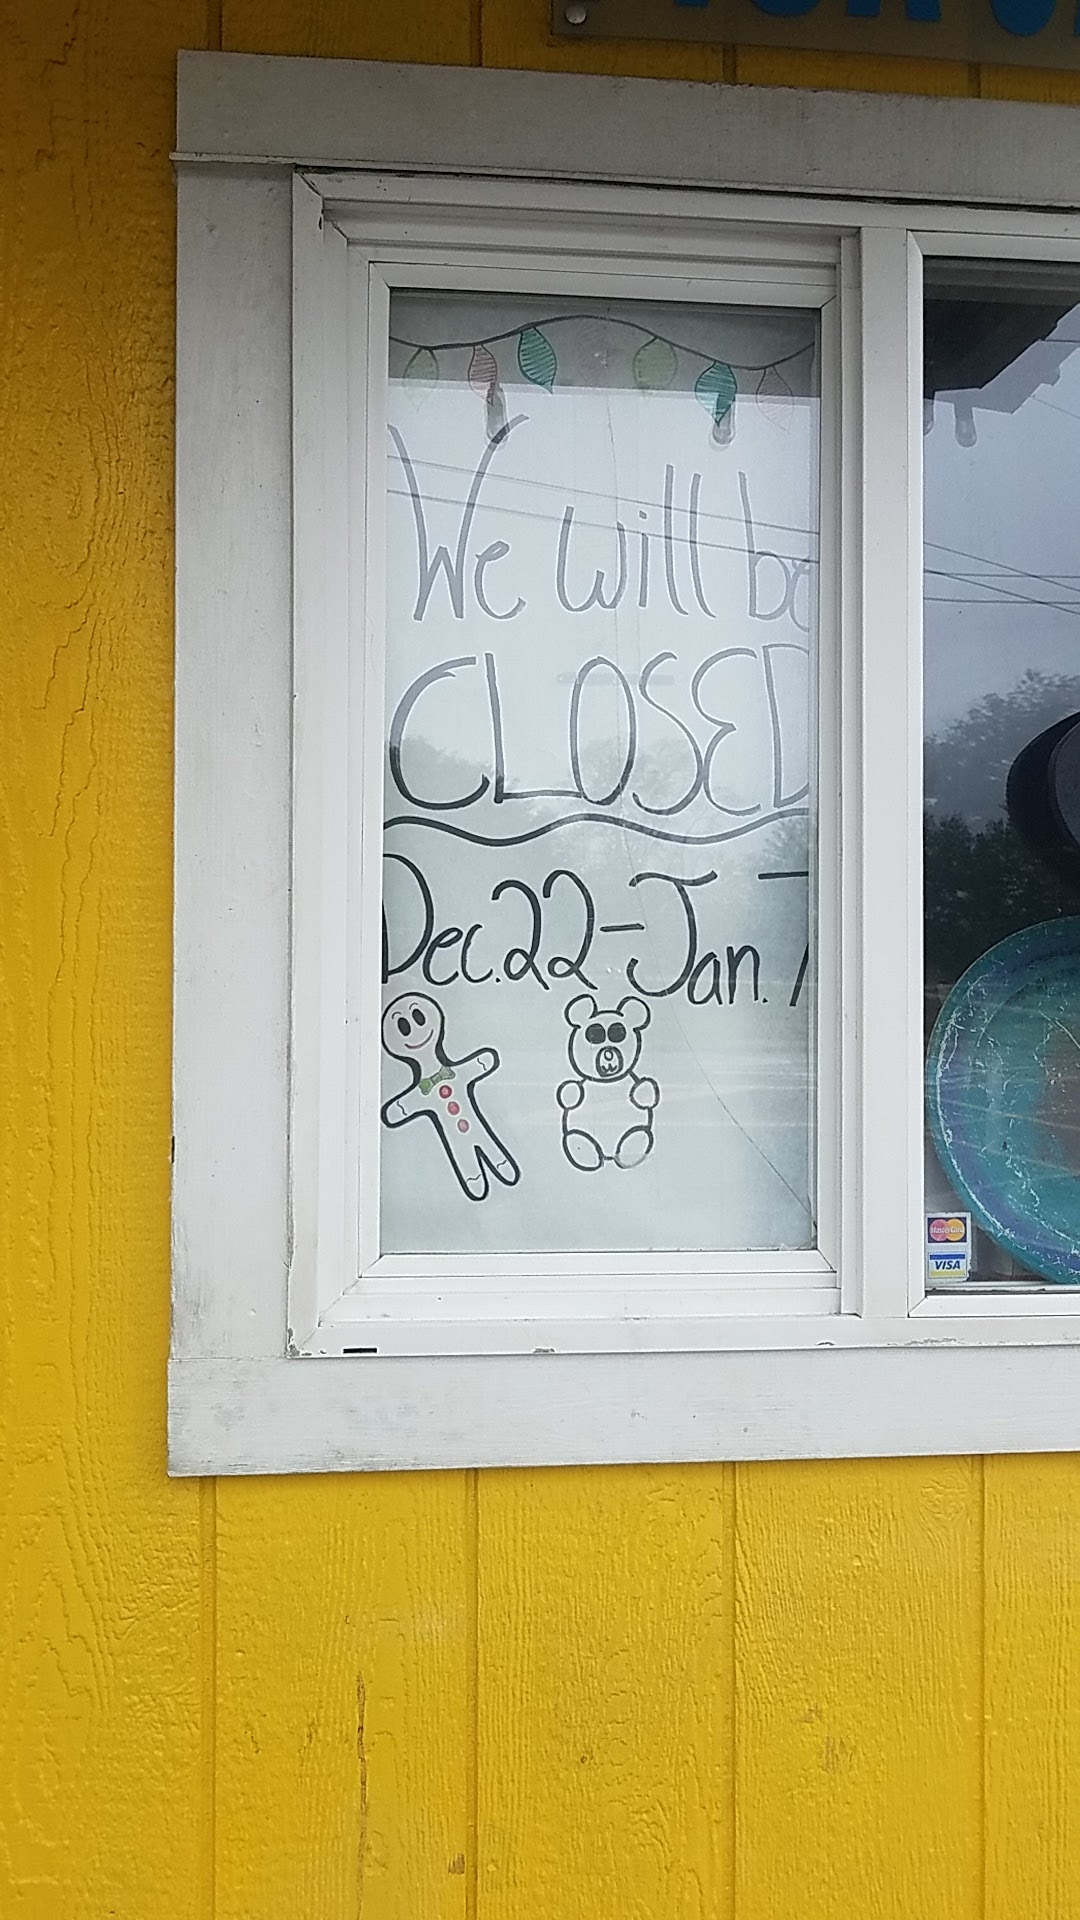 We will be
CLOSED
Dec. 22 - Jan. 7
MasterCard
VISA